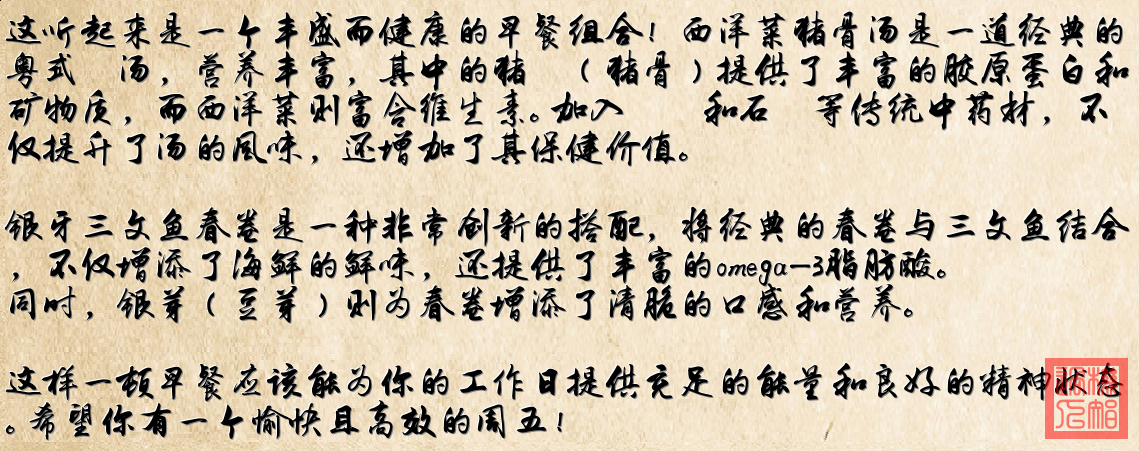 这听起来是一个丰盛而健康的早餐组合！西洋菜猪骨汤是一道经典的
粤式 汤，营养丰富，其中的猪 （猪骨）提供了丰富的胶原蛋白和
矿物质，而西洋菜则富含维生素。加入 和石 等传统中药材，不
仅提升了汤的风味，还增加了其保健价值。
银牙三文鱼春卷是一种非常创新的搭配，将经典的春卷与三文鱼结合
，不仅增添了海鲜的鲜味，还提供了丰富的omega-3脂肪酸。
同时，银芽（豆芽）则为春卷增添了清脆的口感和营养。
这样一顿早餐应该能为你的工作日提供充足的能量和良好的精神状态
。希望你有一个愉快且高效的周五！